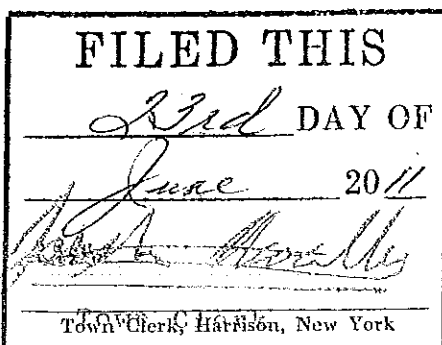 FILED THIS
23rd DAY OF
June 2011
Town Clerk
Town Clerk, Harrison, New York